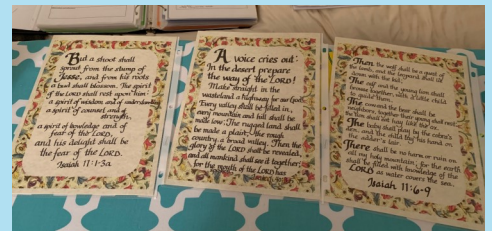 But a shoot shall
sprout from the stump of
Jesse, and from his roots
a bud shall blossom. The spirit
of the LORD shall rest upon him:
a spirit of wisdom and of understanding
a spirit of counsel and of
strength,
a spirit of knowledge and of
fear of the LORD,
and his delight shall be
the fear of the LORD.
Isaiah 11:1-3a
A voice cries out:
In the desert prepare
the way of the LORD!
Make straight in the
wasteland a highway for our God!
Every valley shall be filled in,
every mountain and hill shall be
made low; The rugged land shall
be made a plain, the rough
country, a broad valley. Then the
glory of the LORD shall be revealed,
and all mankind shall see it together;
for the mouth of the LORD has
Then the wolf shall be a guest of
the lamb, and the leopard shall lie
down with the kid;
The calf and the young lion shall
browse together, with a little child
to guide them.
The cow and the bear shall be
neighbors, together their young shall rest;
the lion shall eat hay like the ox.
The baby shall play by the cobra's
den, and the child lay his hand on
the adder's lair.
There shall be no harm or ruin on
all my holy mountain; for the earth
shall be filled with knowledge of the
LORD as water covers the sea.
Isaiah 11:6-9